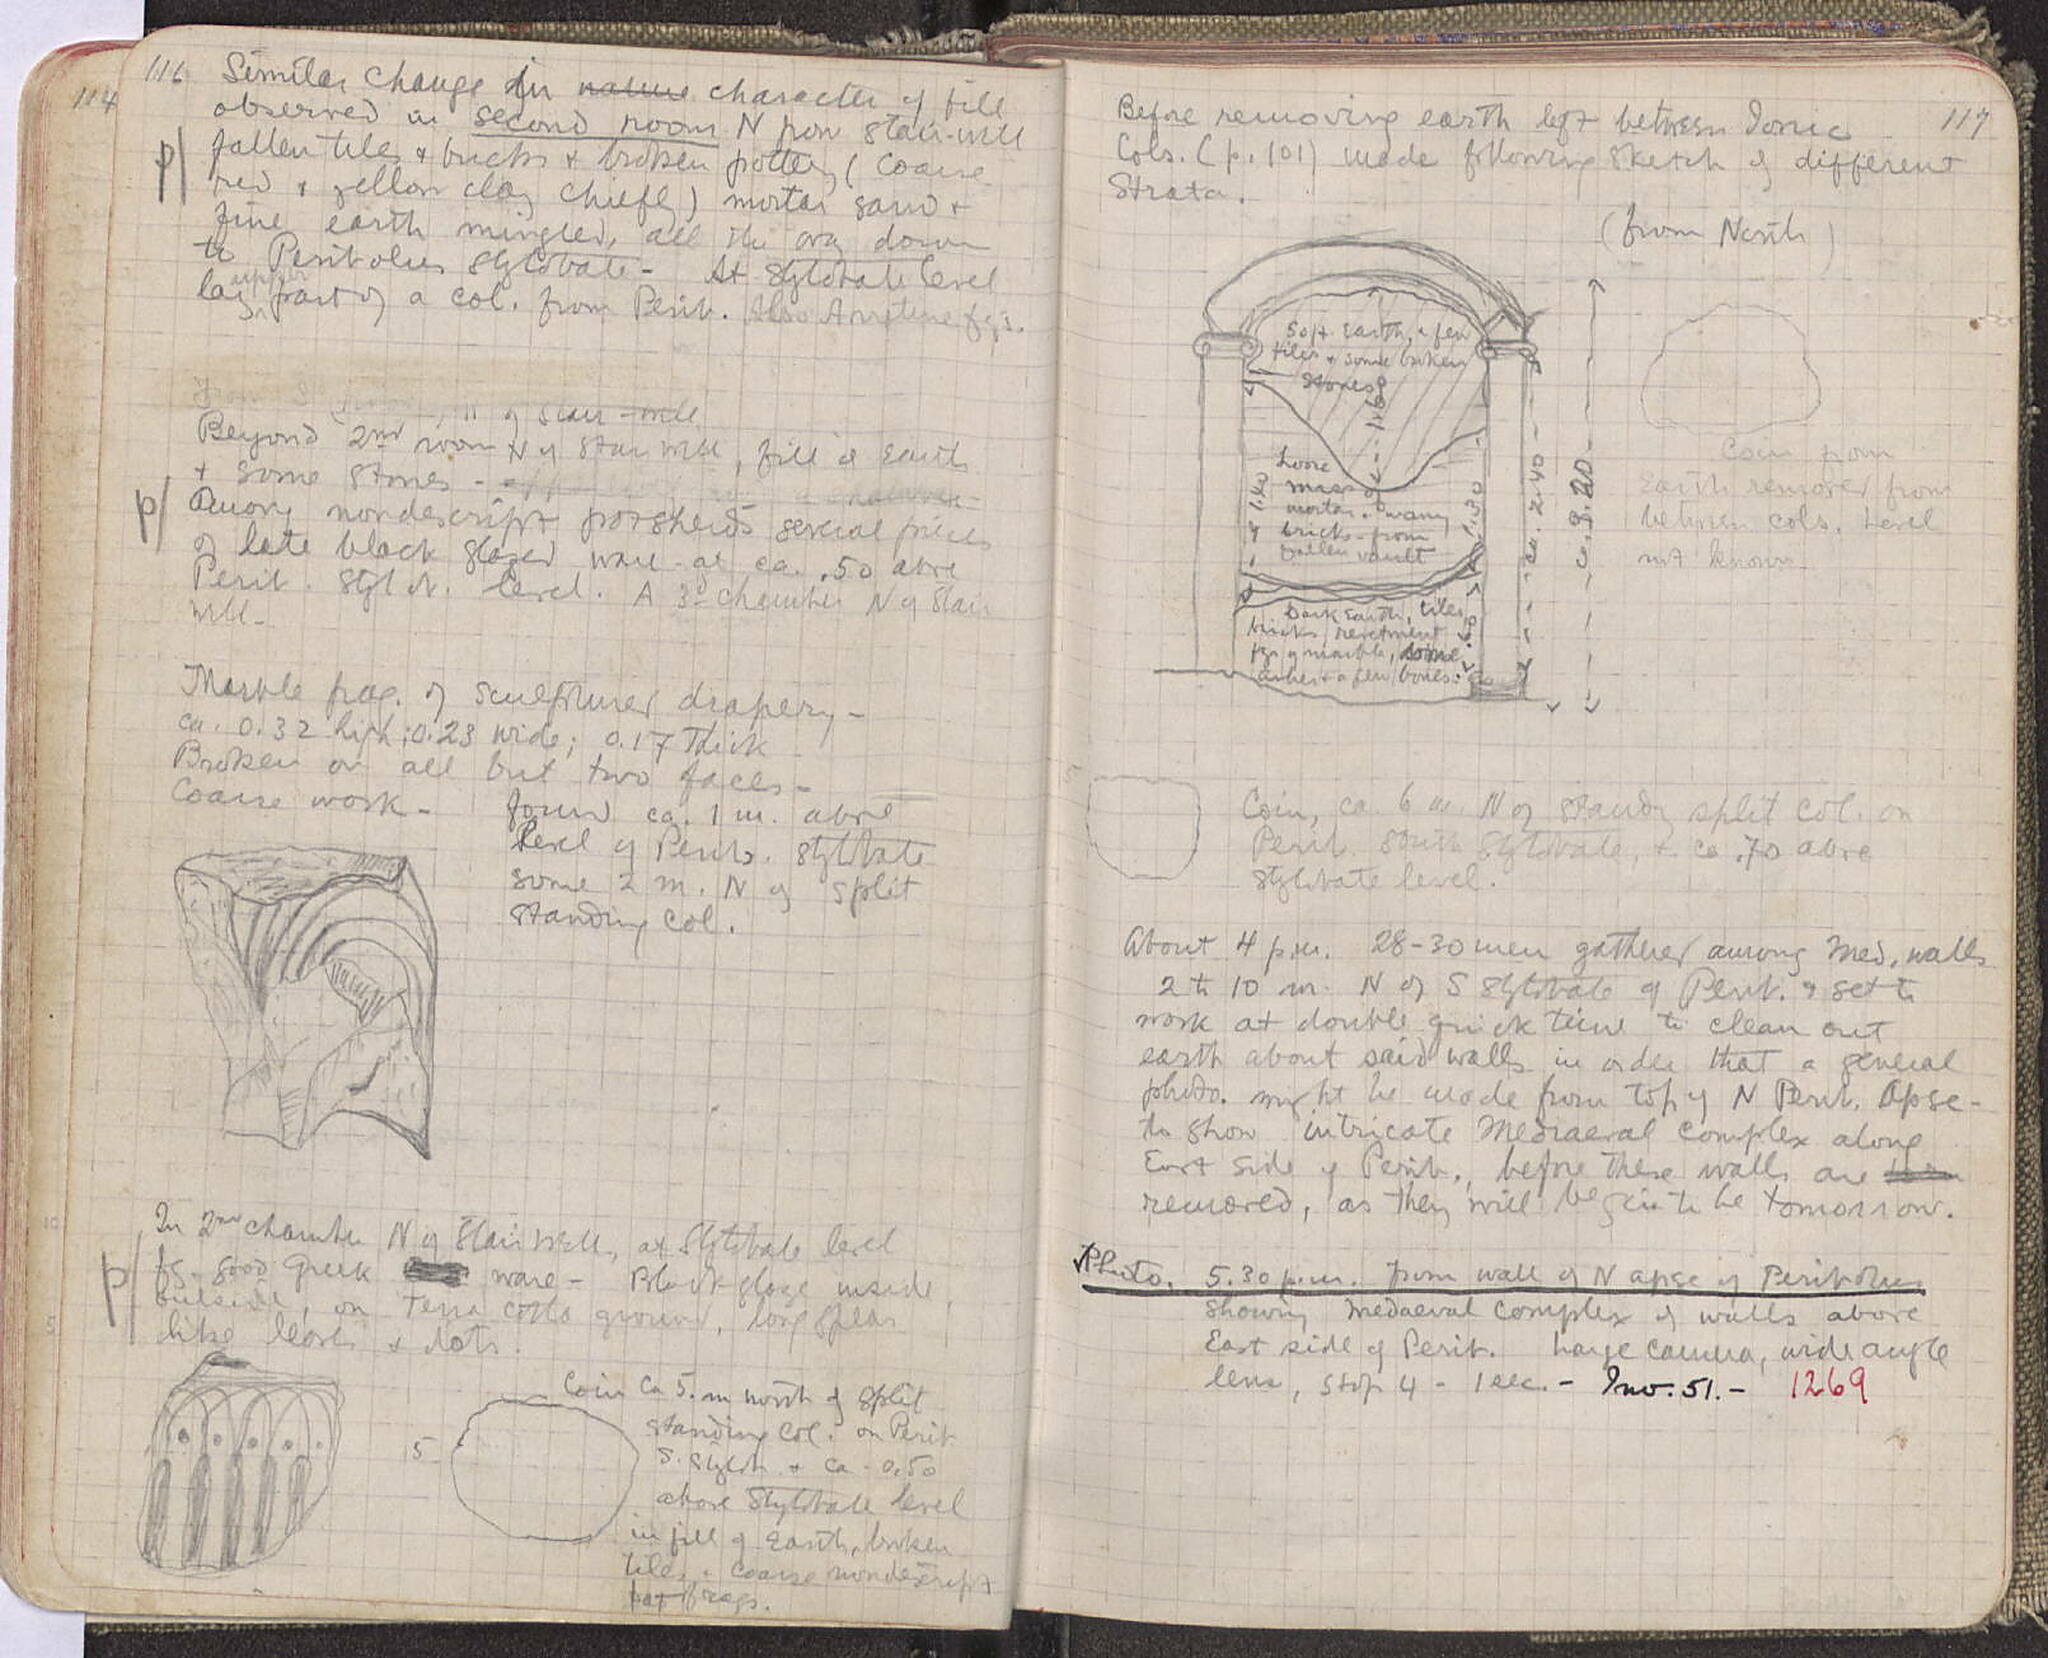 114
116
Similar change in nature character of fill
observed in second room N from stair-well
p/
fallen tiles & bricks & broken pottery (coarse
red & yellow clay chiefly) mortar sand &
fine earth mingled, all the way down
to Peribolus stylobate - At stylobate level
lay upper part of a col. from Perib. Also Arretine fgs.
N of Stair-well
Beyond 2nd room N of Stair well, fill of Earth
+ some stones -
p/
Among nondescript potsherds several pieces
of late black glazed ware at ca. .50 above
Perib. Stylob. level. A 3d chamber N of Stair
well -
Marble frag. of sculptured drapery -
ca. 0.32 high; 0.23 wide; 0.17 thick
Broken on all but two faces -
Coarse work -
found ca. 1 m. above
level of Perib. stylobate
some 2 m. N of split
standing col.
In 2nd chamber N of Stairwell, at stylobate level
p/
fg. good Greek ware - Black glaze inside,
outside, on Terra cotta ground, long spear
like leaves & dots.
Coin ca 5. m north of split
standing col. on Perib
S. Stylob. & ca. 0.50
above Stylobate level
in fill of Earth, broken
tiles & coarse nondescript
pot frags.
5
117
Before removing earth left between Ionic
Cols. (p. 101) made following sketch of different
Strata.
(from North)
Soft Earth, a few
tiles & some broken
stones
1.60
Loose
mass of
mortar. many
bricks from
fallen vault
1.20
1.30
ca. 2.40
ca. 3.20
Dark Earth, tiles,
bricks, revetment
fgs of marble, some
ashes & a few bones.
Coin from
Earth removed from
between cols. Level
not known
5
Coin, ca. 6 m. N of standg split col. on
Perib South Stylobate, & ca .70 above
stylobate level.
About 4 p.m. 28-30 men gathered among Med. walls
2 to 10 m. N of S stylobate of Perib. & set to
work at double quick time to clean out
earth about said walls in order that a general
photo. might be made from top of N Perib. Apse -
to show intricate Mediaeval complex along
East side of Perib., before these walls are
removed, as they will begin to be tomorrow.
Photo. 5.30 p.m. from wall of N apse of Peribolus
showing mediaeval complex of walls above
East side of Perib. Large camera, wide angle
lens, stop 4 - 1 sec. - Inv. 51. - 1269